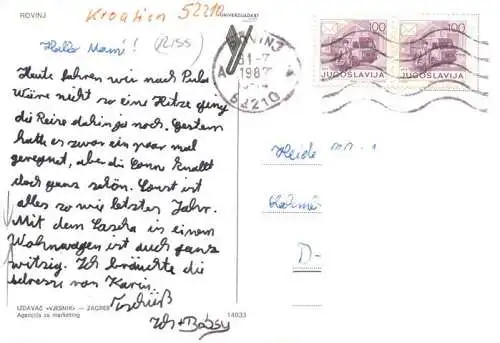 ROVINJ
Kroatien 52210
UNIVERZIJADA
Hallo Mami! (RISS)
100
100
JUGOSLAVIJA
JUGOSLAVIJA
A
31-7
1987
52210
Heute fahren wir nach Pula
Wäre nicht so eine Hitze ging
die Reise dahin ja noch. Gestern
hatte es zwar ein paar mal
geregnet, aber die Sonne knallt
doch ganz schön. Sonst ist
alles so wie letztes Jahr.
Mit dem Sascha in einem
Wohnwagen ist auch ganz
witzig. Ich bräuchte die
Adresse von Karin.
Tschüß
Ich + Babsy
Heide
D-
IZDAVAČ «VJESNIK» — ZAGREB
Agencija za marketing
14033